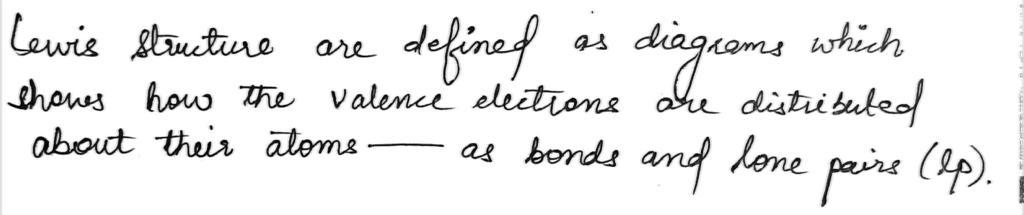 Lewis structure are defined as diagrams which
shows how the valence electrons are distributed
about their atoms — as bonds and lone pairs (lp).